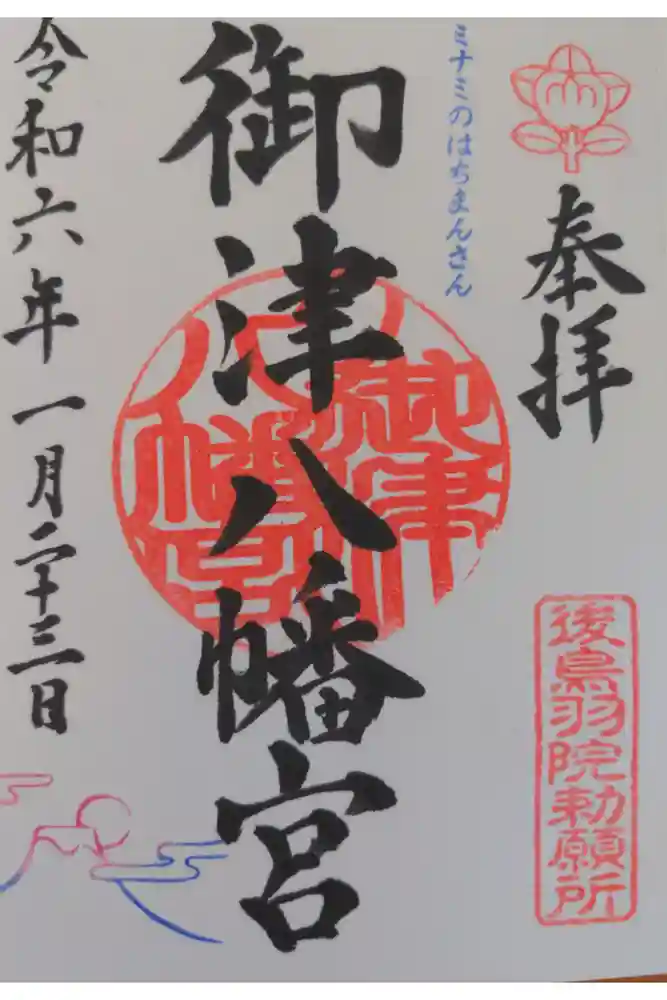 奉拝
後鳥羽院勅願所
ミナミのはちまんさん
御津八幡宮
御津八幡宮
令和六年一月二十三日